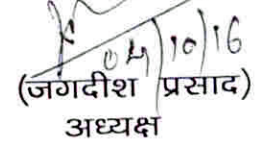 04/10/16
(जगदीश प्रसाद)
अध्यक्ष